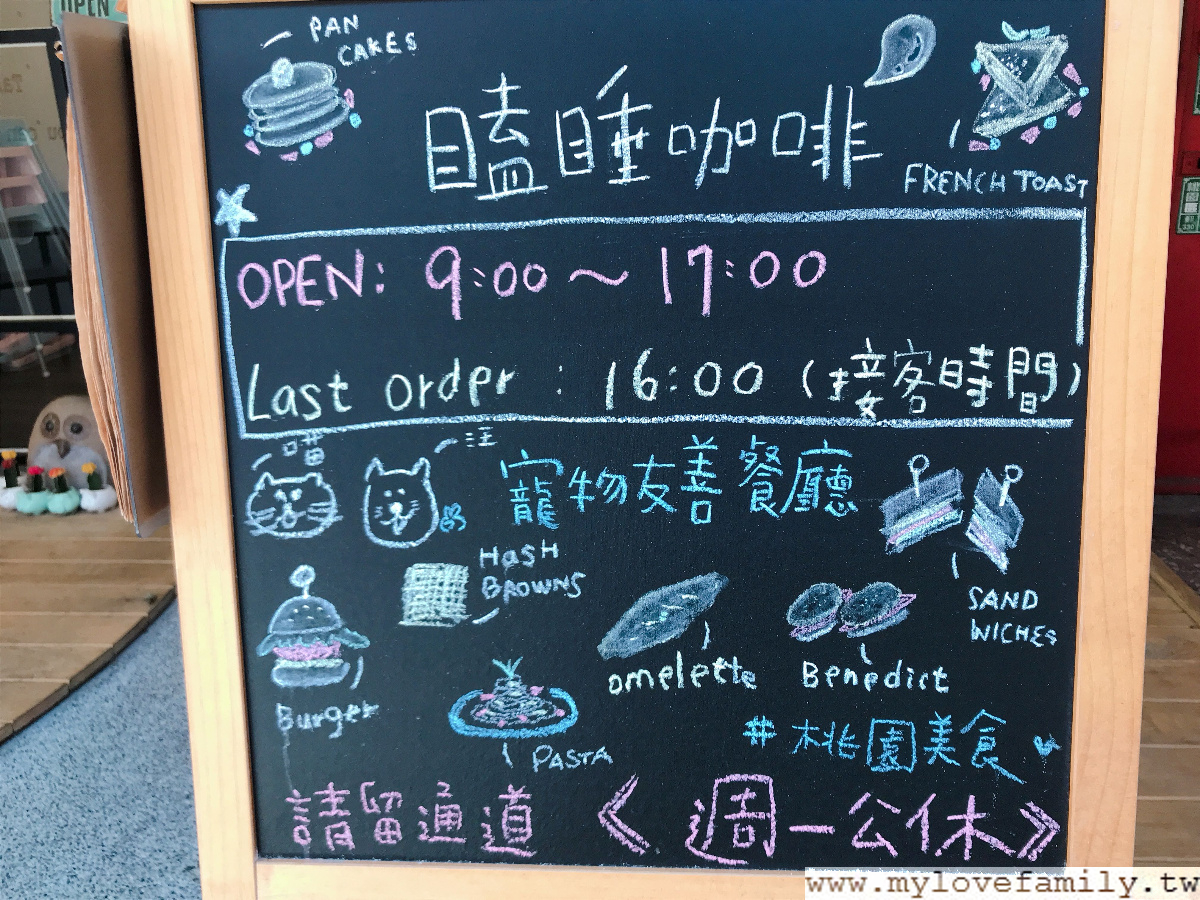 OPEN
PAN
CAKES
瞌睡咖啡
FRENCH TOAST
OPEN: 9:00～17:00
Last order : 16:00 (接客時間)
喵
汪
寵物友善餐廳
HASH
BROWNS
SAND
WICHES
omelette
Benedict
Burger
PASTA
#桃園美食
請留通道 《週一公休》
www.mylovefamily.tw